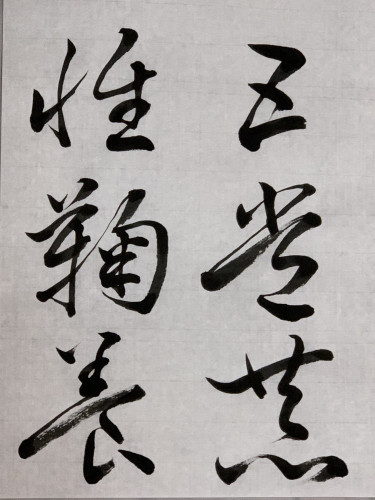 五常恭
惟鞠養